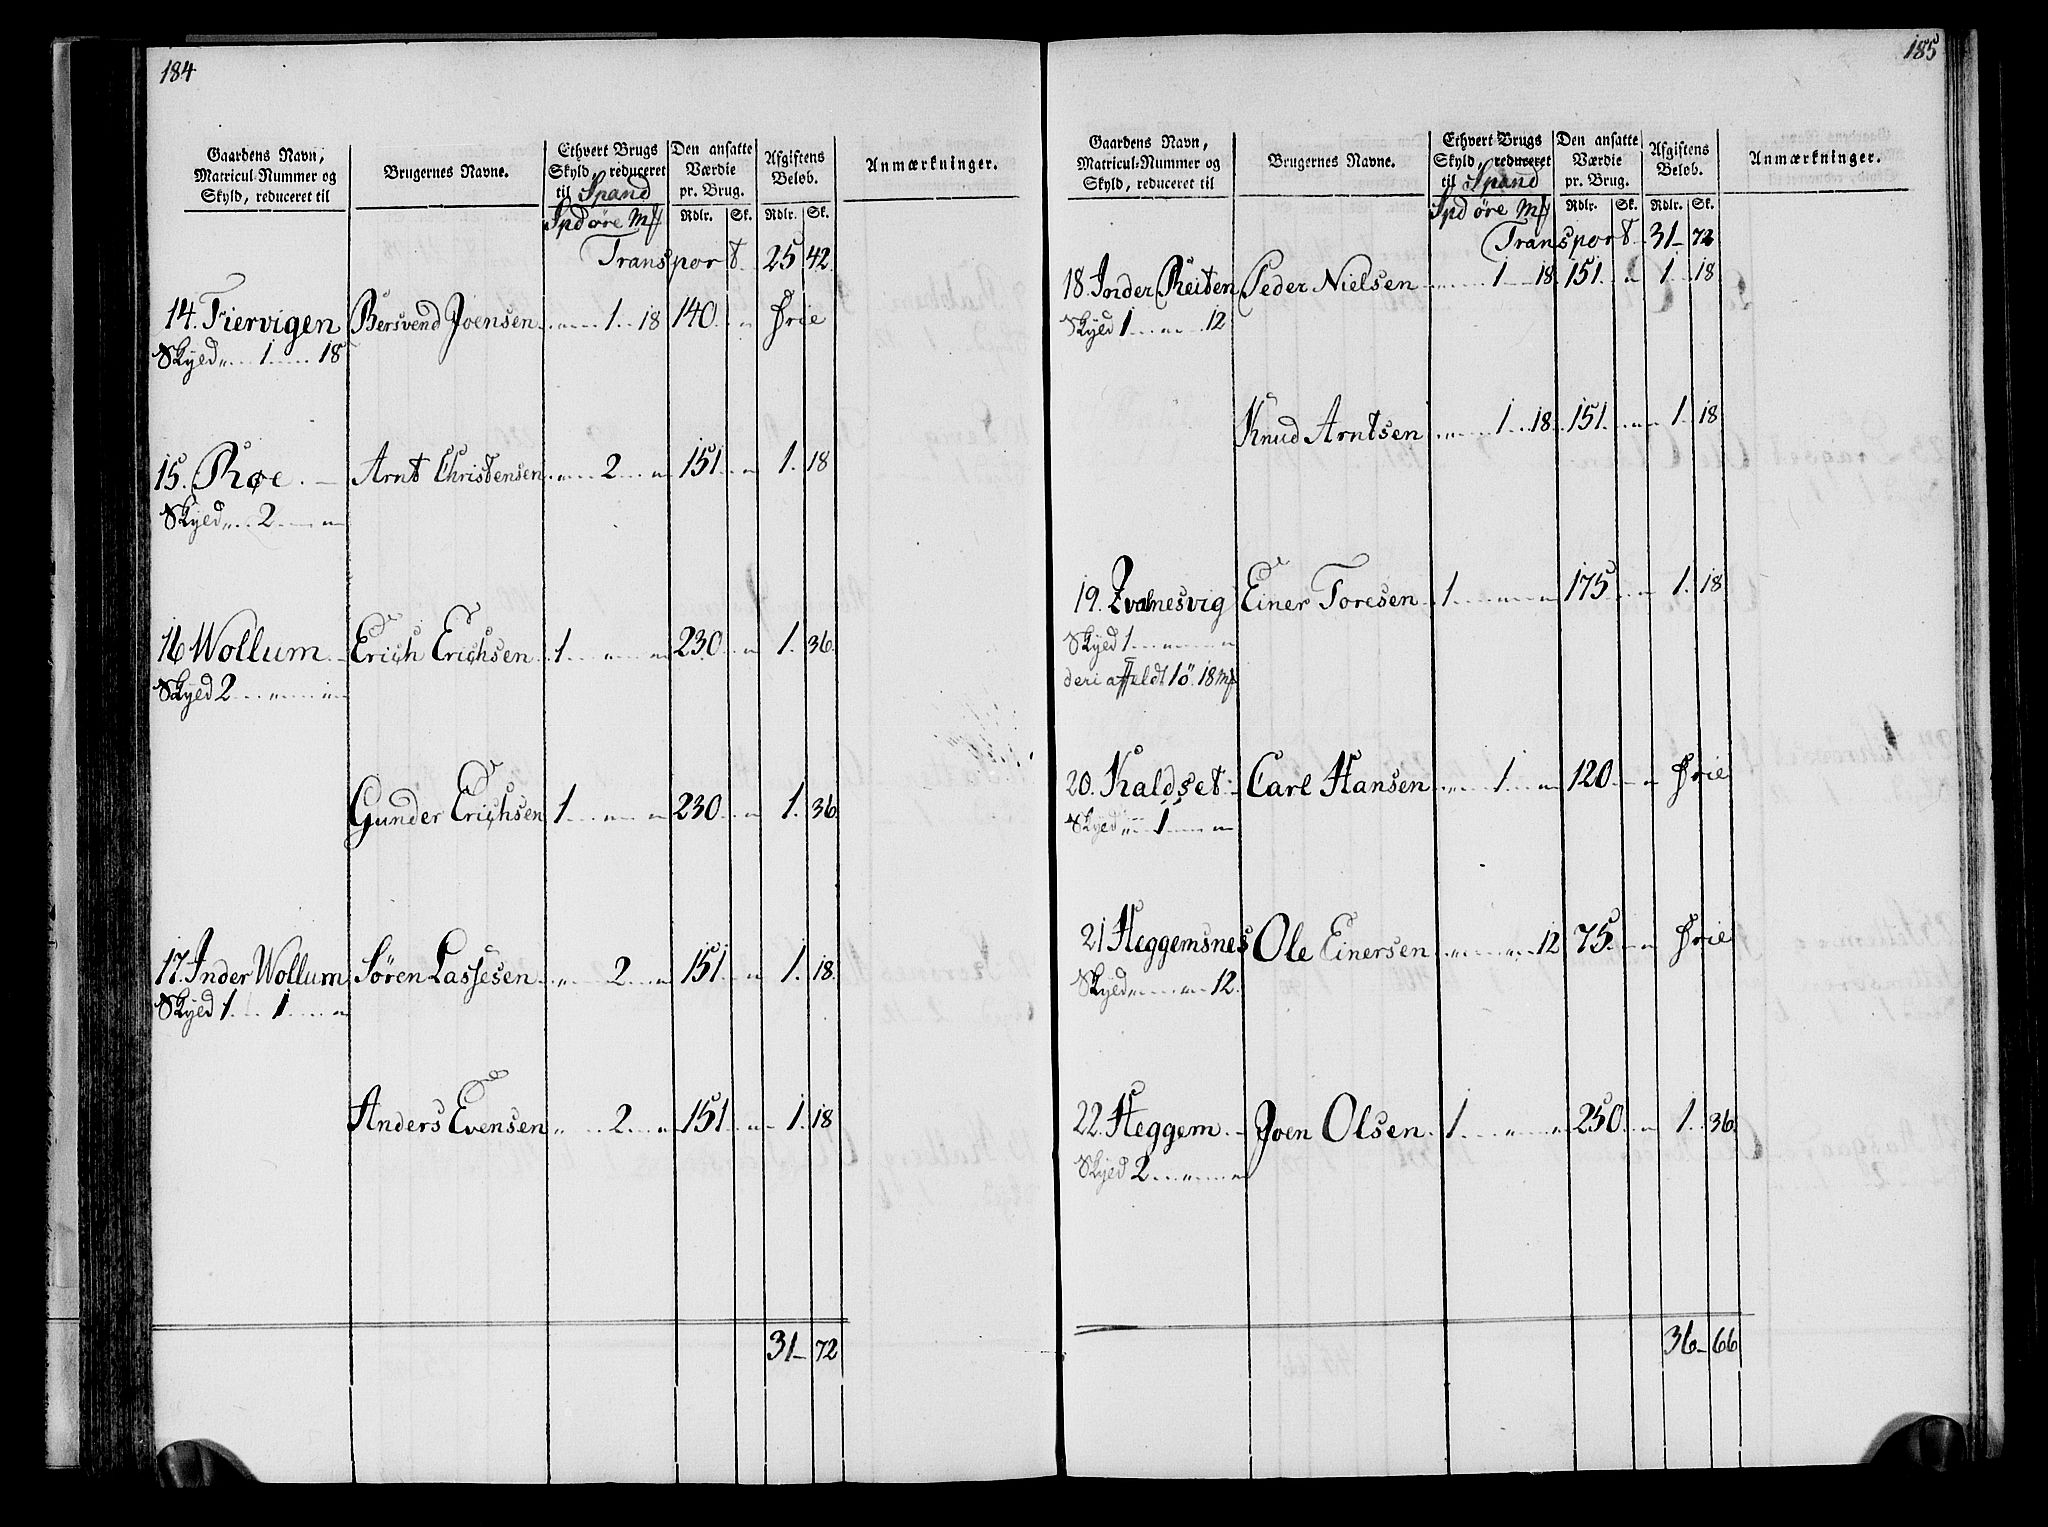 184
Gaardens Navn, Matricul-Nummer og Skyld, reduceret til
Brugernes Navne.
Ethvert Brugs Skyld, reduceret til Spand
Spd øre mk
Den ansatte Værdie pr. Brug.
Rdlr. Sk.
Afgiftens Beløb.
Rdlr. Sk.
Anmærkninger.
Transport 25 42
14. Fiervigen Bersvend Joensen 1 18 140 Frie
Skyld 1 18
15. Røe Arnt Christensen 2 151 1. 18
Skyld 2
16 Wollum Erich Erichsen 1 230 1. 36
Skyld 2
Gunder Erichsen 1 230 1. 36
17. Inder Wollum Søren Lassesen 2 151 1. 18.
Skyld 1 1
Anders Evensen 2 151 1. 18
31 72
185
Gaardens Navn, Matricul-Nummer og Skyld, reduceret til
Brugernes Navne.
Ethvert Brugs Skyld, reduceret til Spand
Spd øre mk
Den ansatte Værdie pr. Brug.
Rdlr. Sk.
Afgiftens Beløb.
Rdlr. Sk.
Anmærkninger.
Transport 31 72
18. Inder Reiten Peder Nielsen 1 18 151 1 18
Skyld 1 12
Knud Arntsen 1 18 151 1. 18
19. Evalnesvig Einer Toresen 1 175 1. 18
Skyld 1
deri affeldt 1ö. 18 mk
20. Kaldset Carl Hansen 1 120 Frie
Skyld 1
21 Heggemsnes Ole Einersen 12 75 Frie
Skyld 12
22. Heggem Joen Olsen 1 250 1. 36
Skyld 2
36 66